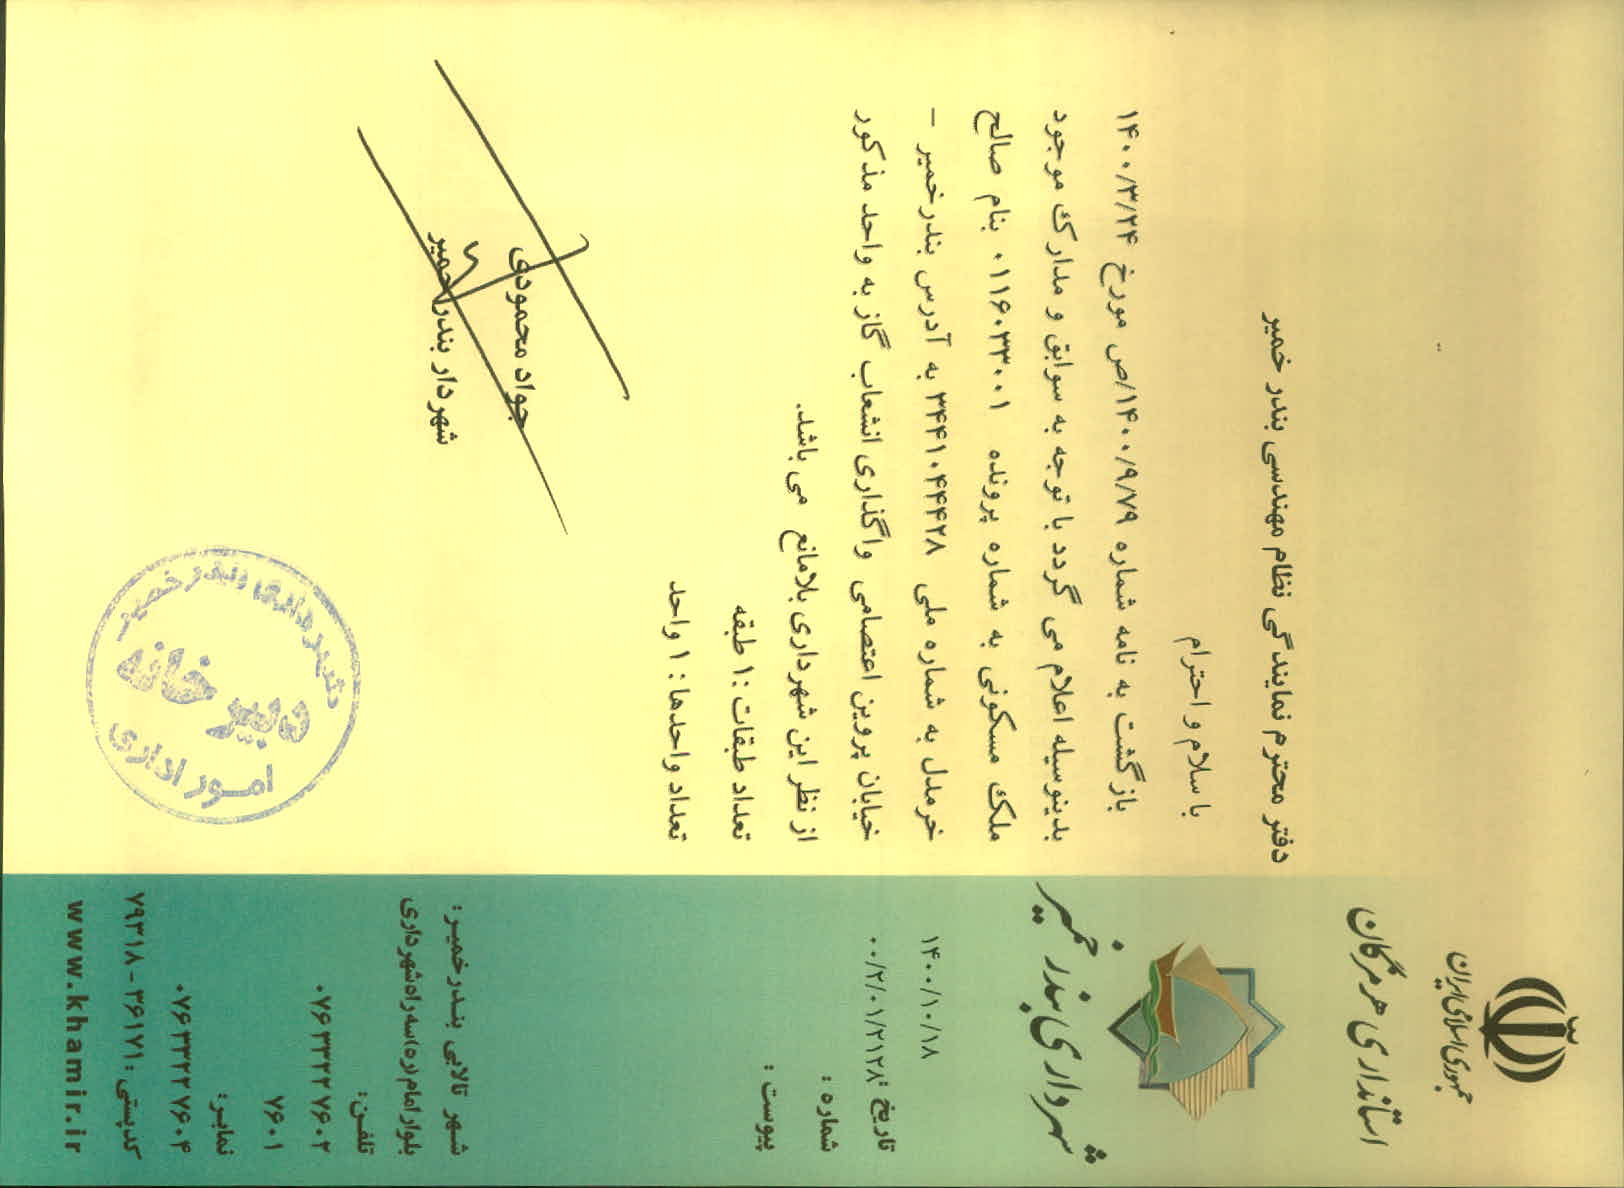 جمهوری اسلامی ایران
استانداری هرمزگان
شهرداری بندر خمیر
۱۴۰۰/۱۰/۱۸
تاریخ : ۰۰/۲/۰۱/۲۱۲۸
شماره :
پیوست :
دفتر محترم نمایندگی نظام مهندسی بندر خمیر
با سلام و احترام
بازگشت به نامه شماره ۱۴۰۰/۹/۷۹/ص مورخ ۱۴۰۰/۳/۲۴
بدینوسیله اعلام می گردد با توجه به سوابق و مدارک موجود
ملک مسکونی به شماره پرونده ۰۱۱۶۰۳۳۰۰۱ بنام صالح
خرمدل به شماره ملی ۳۴۴۱۰۴۴۴۲۸ به آدرس بندرخمیر –
خیابان پروین اعتصامی واگذاری انشعاب گاز به واحد مذکور
از نظر این شهرداری بلامانع می باشد.
تعداد طبقات :۱ طبقه
تعداد واحدها : ۱ واحد
جواد محمودی
شهردار بندرخمیر
شهرداری بندر خمیر
دبیر خانه
امور اداری
شهر تالابی بندرخمیر:
بلوار امام(ره)سه راه شهرداری
تلفن:
۰۷۶۳۳۲۲۷۶۰۲
۷۶۰۱
نمابر:
۰۷۶۳۳۲۲۷۶۰۴
کدپستی : ۳۶۱۷۱ - ۷۹۳۱۸
www.khamir.ir